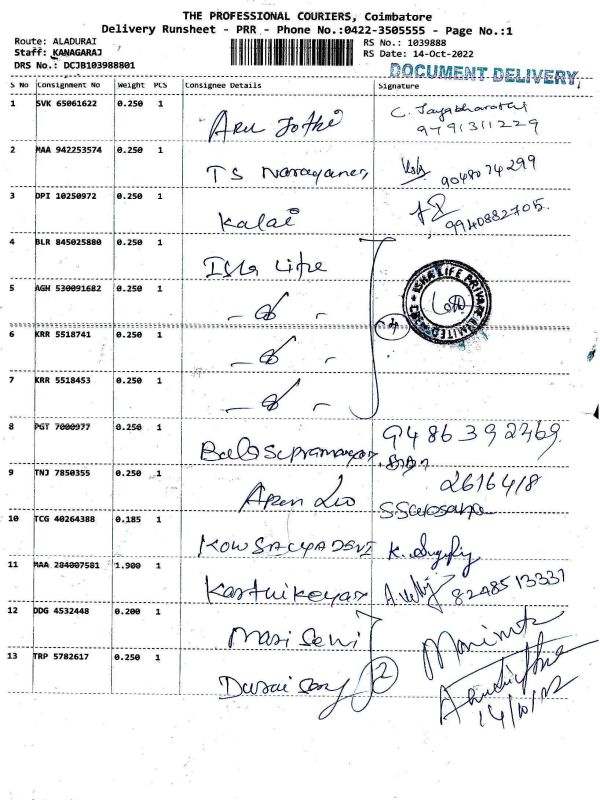 THE PROFESSIONAL COURIERS, Coimbatore
Delivery Runsheet - PRR - Phone No.:0422-3505555 - Page No.:1
Route: ALADURAI
Staff: KANAGARAJ
DRS No.: DCJB103988801
RS No.: 1039888
RS Date: 14-Oct-2022
DOCUMENT DELIVERY
S No Consignment No Weight PCS Consignee Details Signature
1 SVK 65061622 0.250 1
C. Jayabharathi
9791311229
2 MAA 942253574 0.250 1
TS Narayanen
9048074299
3 DPI 10250972 0.250 1
Kalai
9940882705.
4 BLR 845025880 0.250 1
Isha Life
5 AGH 530091682 0.250 1
ISHA LIFE PRIVATE LIMITED
4
6 KRR 5518741 0.250 1
7 KRR 5518453 0.250 1
8 PGT 7000977 0.250 1
9486392769
9 TNJ 7850355 0.250 1
2616418
10 TCG 40264388 0.185 1
KOWSALYADEVI
11 MAA 284007581 1.900 1
Karthikeyan
8248513331
12 DDG 4532448 0.200 1
13 TRP 5782617 0.250 1
2
14/10/22